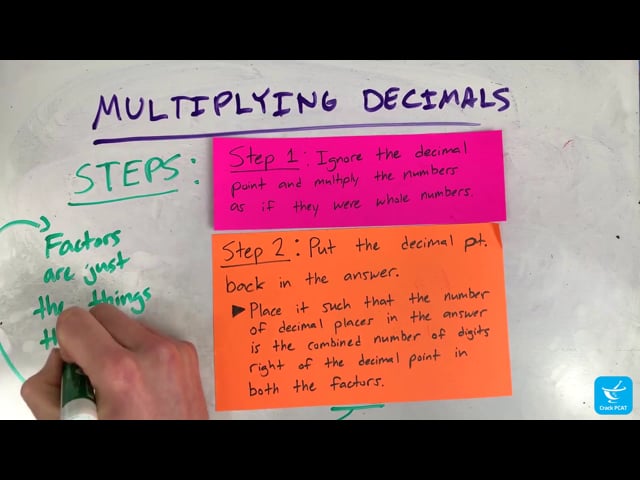 MULTIPLYING DECIMALS
STEPS:
Step 1: Ignore the decimal
point and multiply the numbers
as if they were whole numbers.
Step 2: Put the decimal pt.
back in the answer.
▶ Place it such that the number
of decimal places in the answer
is the combined number of digits
right of the decimal point in
both the factors.
Factors
are just
the things
Crack PCAT